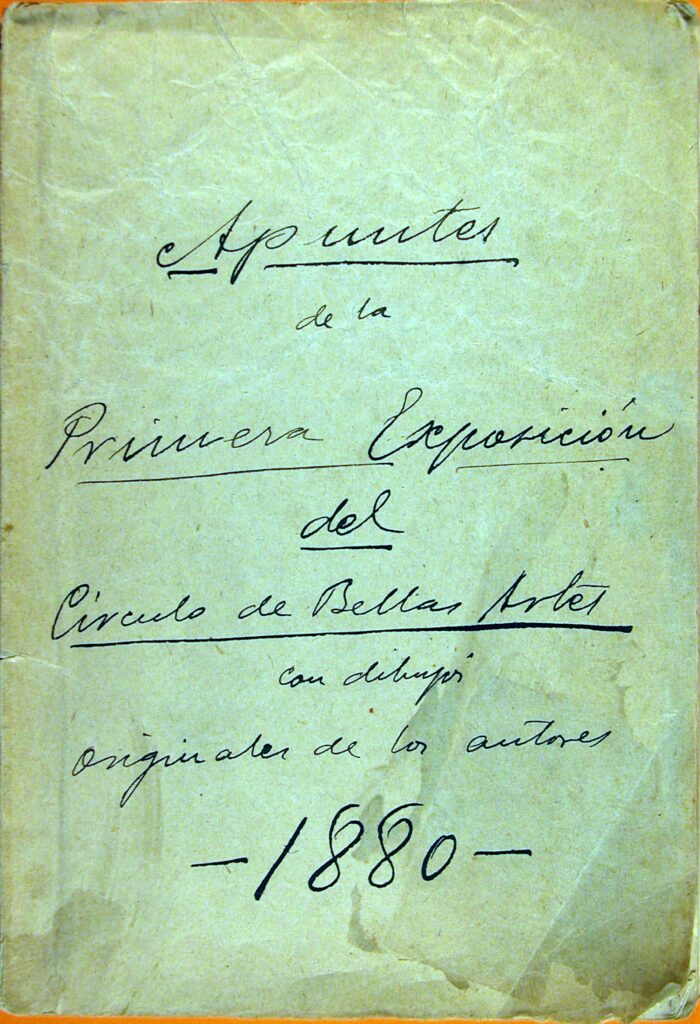 Apuntes
de la
Primera Exposición
del
Círculo de Bellas Artes
con dibujos
originales de los autores
-1880-